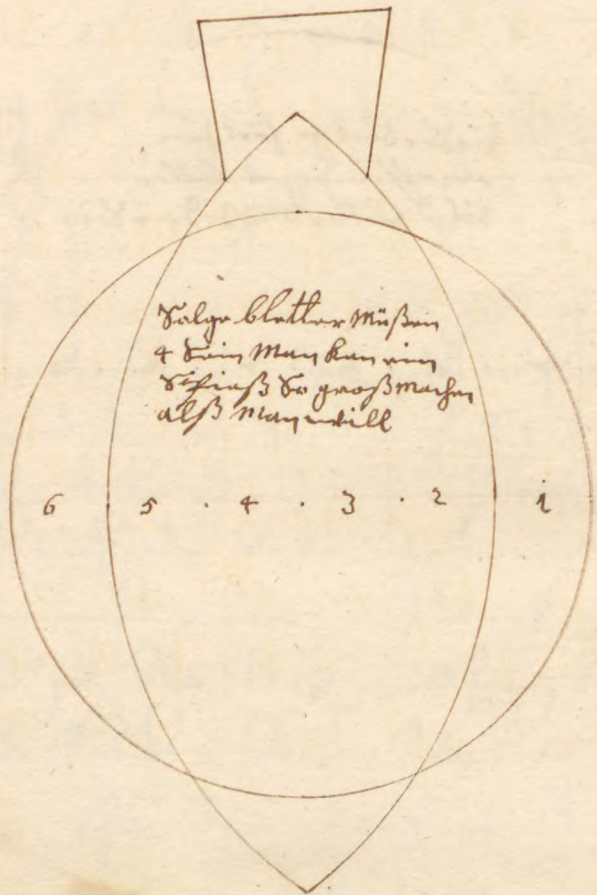 Solge bletter Müßen
4 Sein Man kan ein
So groß machen
alß Man will
6 5 . 4 . 3 . 2 1